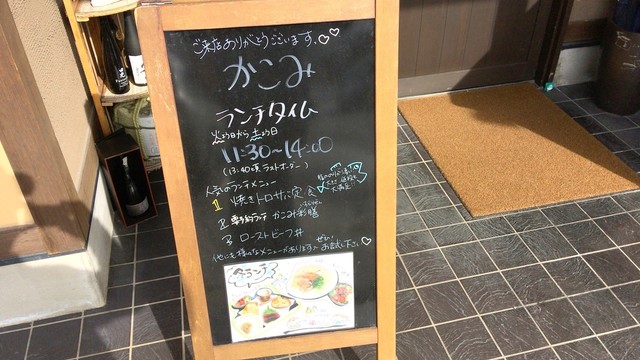 ご来店ありがとうございます。
かこみ
ランチタイム
火よう日から土よう日
11:30〜14:00
(13:40頃ラストオーダー)
人気のランチメニュー
1 焼きトロサバ定食
2 かこみ彩膳
3 ローストビーフ丼
ぜひ!
ランチ